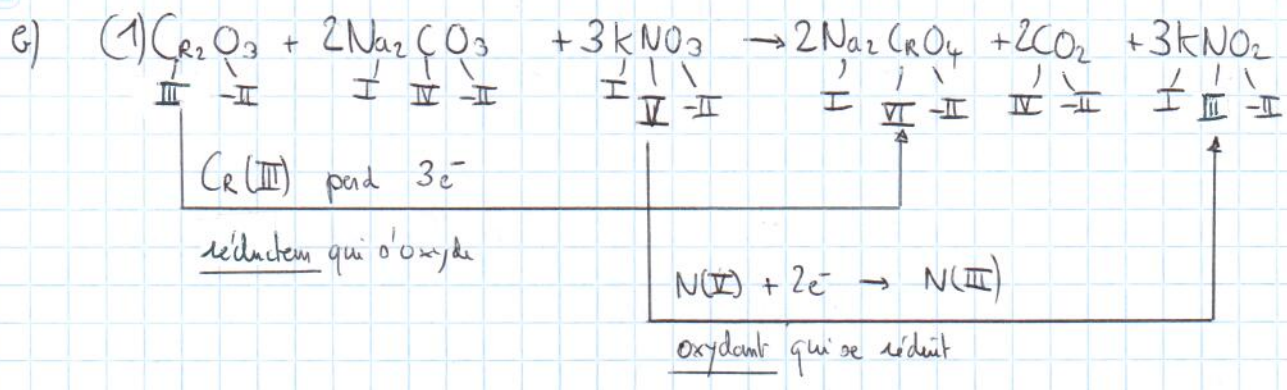 e) (1)Cr₂O₃ + 2Na₂CO₃ + 3KNO₃ → 2Na₂CrO₄ + 2CO₂ + 3KNO₂
III -II I IV -II I V -II I VI -II IV -II I III -II
Cr(III) perd 3e⁻
réducteur qui s'oxyde
N(V) + 2e⁻ → N(III)
oxydant qui se réduit